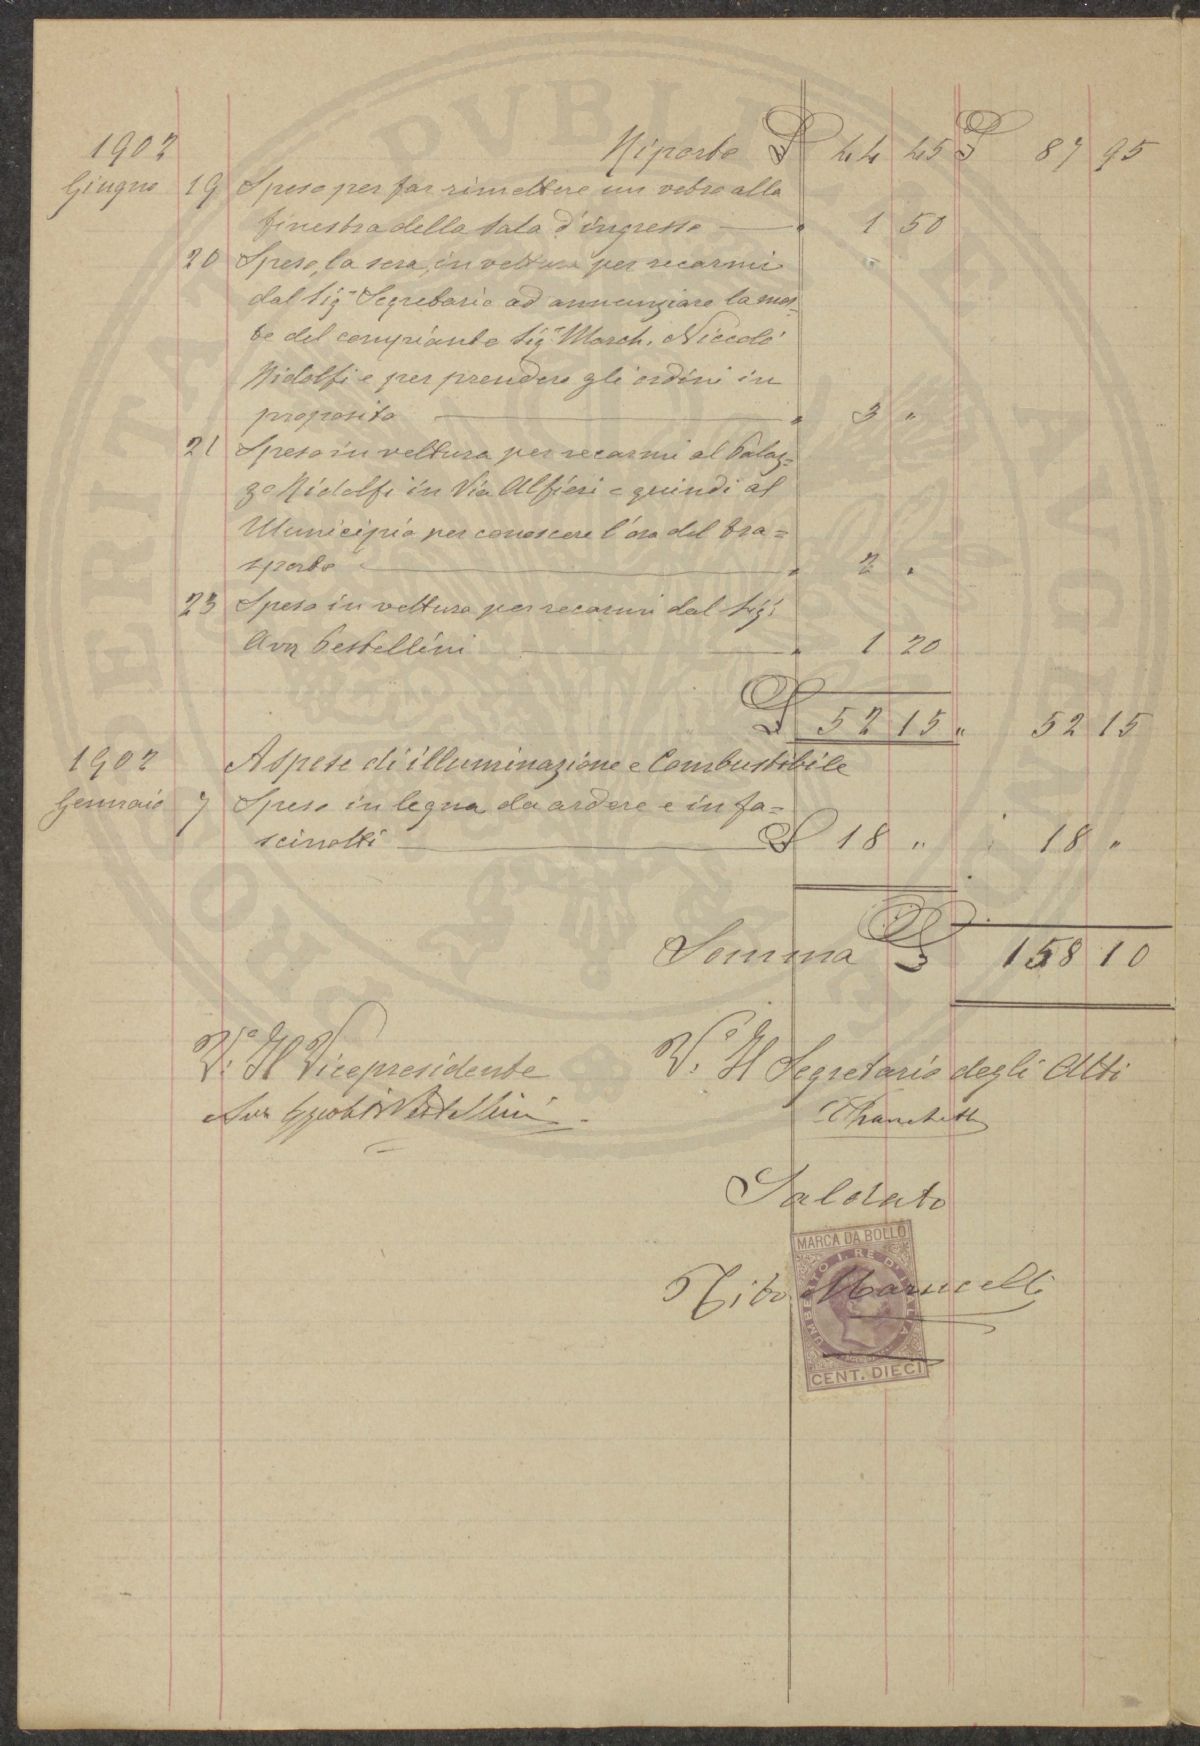 1902 Riporto £ 44 45 £ 87 95
Giugno 19 Speso per far rimettere un vetro alla
finestra della Sala d'ingresso " 1 50
20 Speso, la sera, in vettura per recarmi
dal Sig.r Segretario ad annunziare la mor=
te del compianto Sig.r March. Niccolò
Ridolfi e per prendere gli ordini in
proposito " 3 "
21 Speso in vettura per recarmi al Palaz=
zo Ridolfi in Via Alfieri e quindi al
Municipio per conoscere l'ora del tra=
sporto " 2 "
23 Speso in vettura per recarmi dal Sig.
Avv. Pestellini " 1 20
£ 52 15 " 52 15
1902 A spese di illuminazione e Combustibile
Gennaio 7 Speso in legna da ardere e in fa=
scinotti £ 18 " 18 "
Somma £ 158 10
V.° Il Vicepresidente
V.° Il Segretario degli Atti
Avv. Ippolito Pestellini
Saldato
MARCA DA BOLLO
UMBERTO I. RE D'ITALIA
Tito Marucelli
CENT. DIECI
PROSPERITATI PVBLICAE AVGENDAE